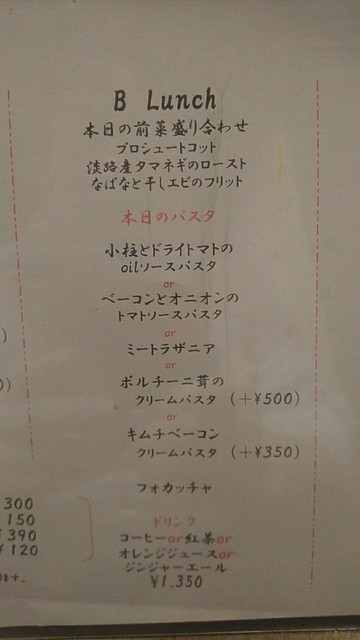 B Lunch
本日の前菜盛り合わせ
プロシュートコット
淡路産タマネギのロースト
なばなと干しエビのフリット
本日のパスタ
小柱とドライトマトの
oilソースパスタ
or
ベーコンとオニオンの
トマトソースパスタ
or
ミートラザニア
or
ポルチーニ茸の
クリームパスタ (+¥500)
or
キムチベーコン
クリームパスタ (+¥350)
フォカッチャ
ドリンク
コーヒーor紅茶or
オレンジジュースor
ジンジャーエール
¥1.350
300
150
390
¥120
ます。